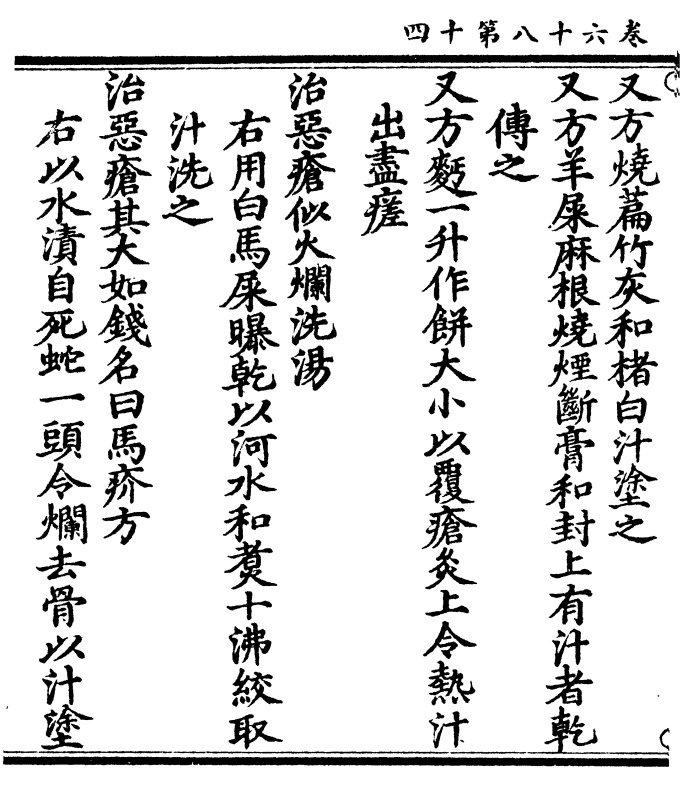 卷六十八第十四
又方燒萹竹灰和楮白汁塗之
又方羊屎麻根燒煙斷膏和封上有汁者乾
傅之
又方麫一升作餅大小以覆瘡灸上令熱汁
出盡瘥
治惡瘡似火爛洗湯
右用白馬屎曝乾以河水和煑十沸絞取
汁洗之
治惡瘡其大如錢名曰馬疥方
右以水漬自死蛇一頭令爛去骨以汁塗